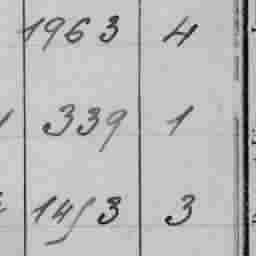 1963 4
339 1
1453 3